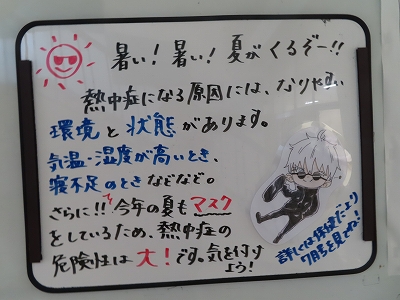 暑い！暑い！夏がくるぞー!!
熱中症になる原因には、なりやすい
環境と状態があります。
気温・湿度が高いとき、
寝不足のときなどなど。
さらに!!今年の夏もマスク
をしているため、熱中症の
危険性は大！です。気を付け
よう！
詳しくは保健だより
7月号を見てね！